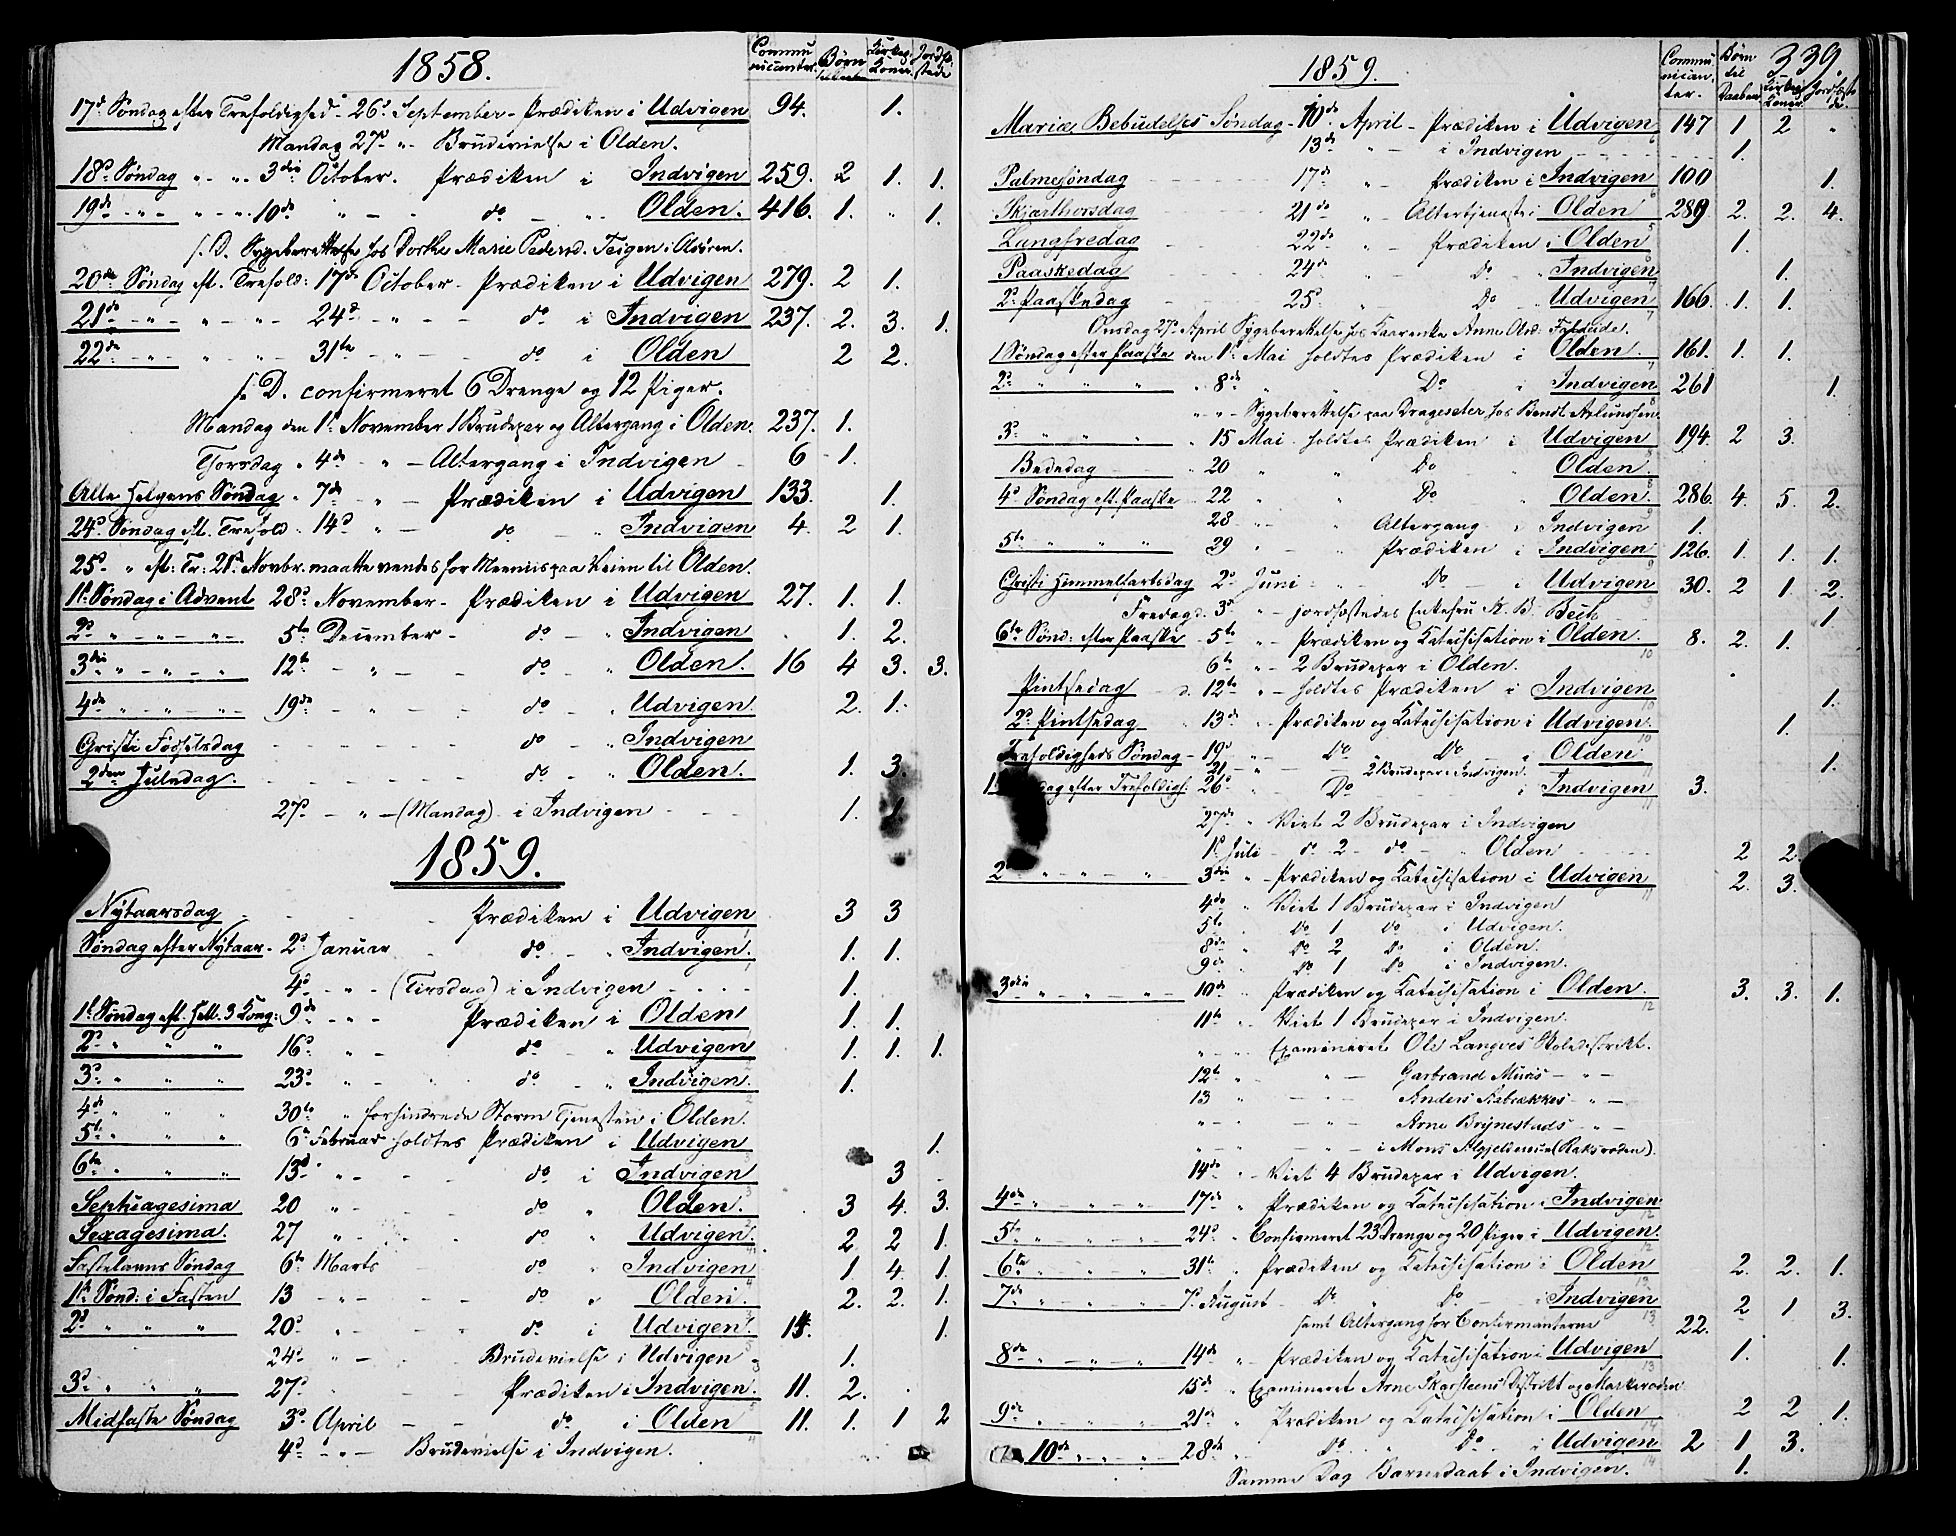 1858.
Communicanter. Børn Kirkeg. Koner Jordfæstede
17d Søndag efter Trefoldighed 26d September - Prædiken i Udvigen 94. 1.
Mandag 27d " Brudevielse i Olden.
18d Søndag " " 3die October. Prædiken i Indvigen 259. 2 1. 1.
19de " " 10de " do Olden. 416. 1. " 1.
s. D. Sygeberettelse hos Dorthe Marie Pedersd. Teigen i
20de Søndag eft. Trefold: 17de October - Prædiken i Udvigen 279. 2 1.
21de " " " 24d " do i Indvigen 237. 2. 3. 1.
22de " " " 31te " do i Olden 2 2.
s. D. confirmeret 6 Drenge og 12 Piger.
Mandag den 1st November 1 Brudepar og Altergang i Olden. 237. 1.
Torsdag " 4de " Altergang i Indvigen 6 1.
Alle Helgens Søndag " 7de " Prædiken i Udvigen 133. 1.
24d Søndag eft. Trefold 14d " do " Indvigen 4. 2 1.
25d " eft: Tr: 21d Novbr. maatte vendes for Meeniis paa Veien til Olden.
1st Søndag i Advent 28d November - Prædiken i Udvigen 27. 1. 1.
2d " " " 5te December - do " Indvigen 1. 2.
3die " " " 12te " do " Olden. 16 4 3. 3.
4de " " " 19de " do " Udvigen 2. 1.
Christi Fødselsdag do " Indvigen
2den Juledag. do " Olden. 1. 3.
27d " (Mandag) i Indvigen 1. 1.
1859.
Nytaarsdag Prædiken i Udvigen 3 3
Søndag efter Nytaar - 2d Januar do " Indvigen 1. 1.
4d " (Tirsdag) i Indvigen 1.
1st Søndag eft. Hell. 3 Kong: 9de " Prædiken i Olden 1. 1.
2d " " " 16d " do " Udvigen 1. 1. 1.
3d " " " 23d " do " Indvigen. 1.
4de " " " 30te " forhindrede Storm Tjenesten i Olden.
5te " " " 6te Februar holdtes Prædiken i Udvigen 1.
6te " " " 13d " do i Indvigen 3
Septuagesima 20 " do " Olden. 3 4. 3.
Sexagesima. 27 " do " Udvigen. 2 2 1.
Fastelavns Søndag 6te Marts do " Indvigen 1 4. 1.
1st Sønd: i Fasten 13 " do " Olden. 2. 2. 1.
2d " " " 20d " do i Udvigen 1.
24d " Brudevielse i Udvigen 1.
3d " " " 27d Prædiken i Indvigen. 11. 2.
Midfaste Søndag 3d April do i Olden 11. 1. 1 2
4d " Brudevielse i Indvigen.
1859. 339
Communicanter. Børn til Daaben Kirkeg. Koner. Jordfæstede
Mariæ Bebudelses Søndag - 10de April - Prædiken i Udvigen 147 1 2 "
13de " i Indvigen 1.
Palmesøndag 17de " Prædiken i Indvigen 100 1.
Skjærthorsdag 21de " Altertjeneste i Olden 289 2. 2. 4.
Langfredag 22de " Prædiken i Olden 1.
Paaskedag 24de Do " Indvigen 1.
2d Paaskedag 25d " Do " Udvigen 166. 1. 1.
Onsdag 27d April Sygeberettelse hos
1 Søndag efter Paaske den 1st Mai holdtes Prædiken i Olden. 161. 1. 1.
2d " " " " 8de " Do i Indvigen 261 1.
" " Sygeberettelse paa Drageseter hos Bendt
3d " " " " 15 Mai holdtes Prædiken i Udvigen 194 2 3.
Bededag 20 " Do " Olden.
4d Søndag eft. Paaske 22 " Do " Olden. 286. 4. 5. 2.
28 " Altergang i Indvigen 1
5te " " " 29 " Prædiken i Indvigen 126. 1. 1. 1.
Christi Himmelfartsdag 2d Juni Do i Udvigen 30. 2 1 2.
Fredag d. 3d " jordfæstedes Enkefru K. B. Bech 1
6te Sønd: efter Paaske 5te " Prædiken og Katechisation i Olden. 8. 2. 1.
6te " 2 Brudepar i Olden.
Pintsedag d. 12te " holdtes Prædiken i Indvigen 1.
2d Pintsedag 13de " Prædiken og Katechisation i Udvigen. 1.
Trefoldigheds Søndag 19d " Do " Do " Olden.
21 " 2 Brudepar i Indvigen. 1.
efter Trefoldigh: 26d " Do i Indvigen 3.
27de " Viet 2 Brudepar i Indvigen
1st Juli do 2 do " Olden 2 2
2 " " " 3die " Prædiken og Katechisation i Udvigen 2. 3.
4de " Viet 1 Brudepar i Indvigen
5te " Do 1 Do i Udvigen.
8de " Do 2 Do i Olden.
9de " Do 1 Do i Indvigen.
3die " " " 10de " Prædiken og Katechisation i Olden. 3. 3. 1.
11te " Viet 1 Brudepar i Indvigen.
" " Examineret Ole Langves Skoledistrikt.
12te " " Garbrand Muris " "
13 " " Anders Aabrækkes " "
" " " Arne Brynestads " "
" " i Mons
14de " Viet 4 Brudepar i Udvigen.
4de " " " 17de " Prædiken og Katechisation i Indvigen
5te " " " 24d " Confirmeret 23 Drenge og 20 Piger i Udvigen.
6te " " " 31te " Prædiken og Katechisation i Olden 2. 2. 1.
7de " " " 7d August Do " Do i Indvigen 2 1 3.
samt Altergang for Confirmanterne 22.
8de " " " 14de " Prædiken og Katechisation i Udvigen 1. 1.
15de " Examineret Arne Skarsteens Distrikt og
9de " " " 21de " Prædiken og Katechisation i Olden 2 2 1.
10de " " " 28de " Do " Do i Udvigen 2 1 3.
Samme Dag Barnedaab i Indvigen. 1.